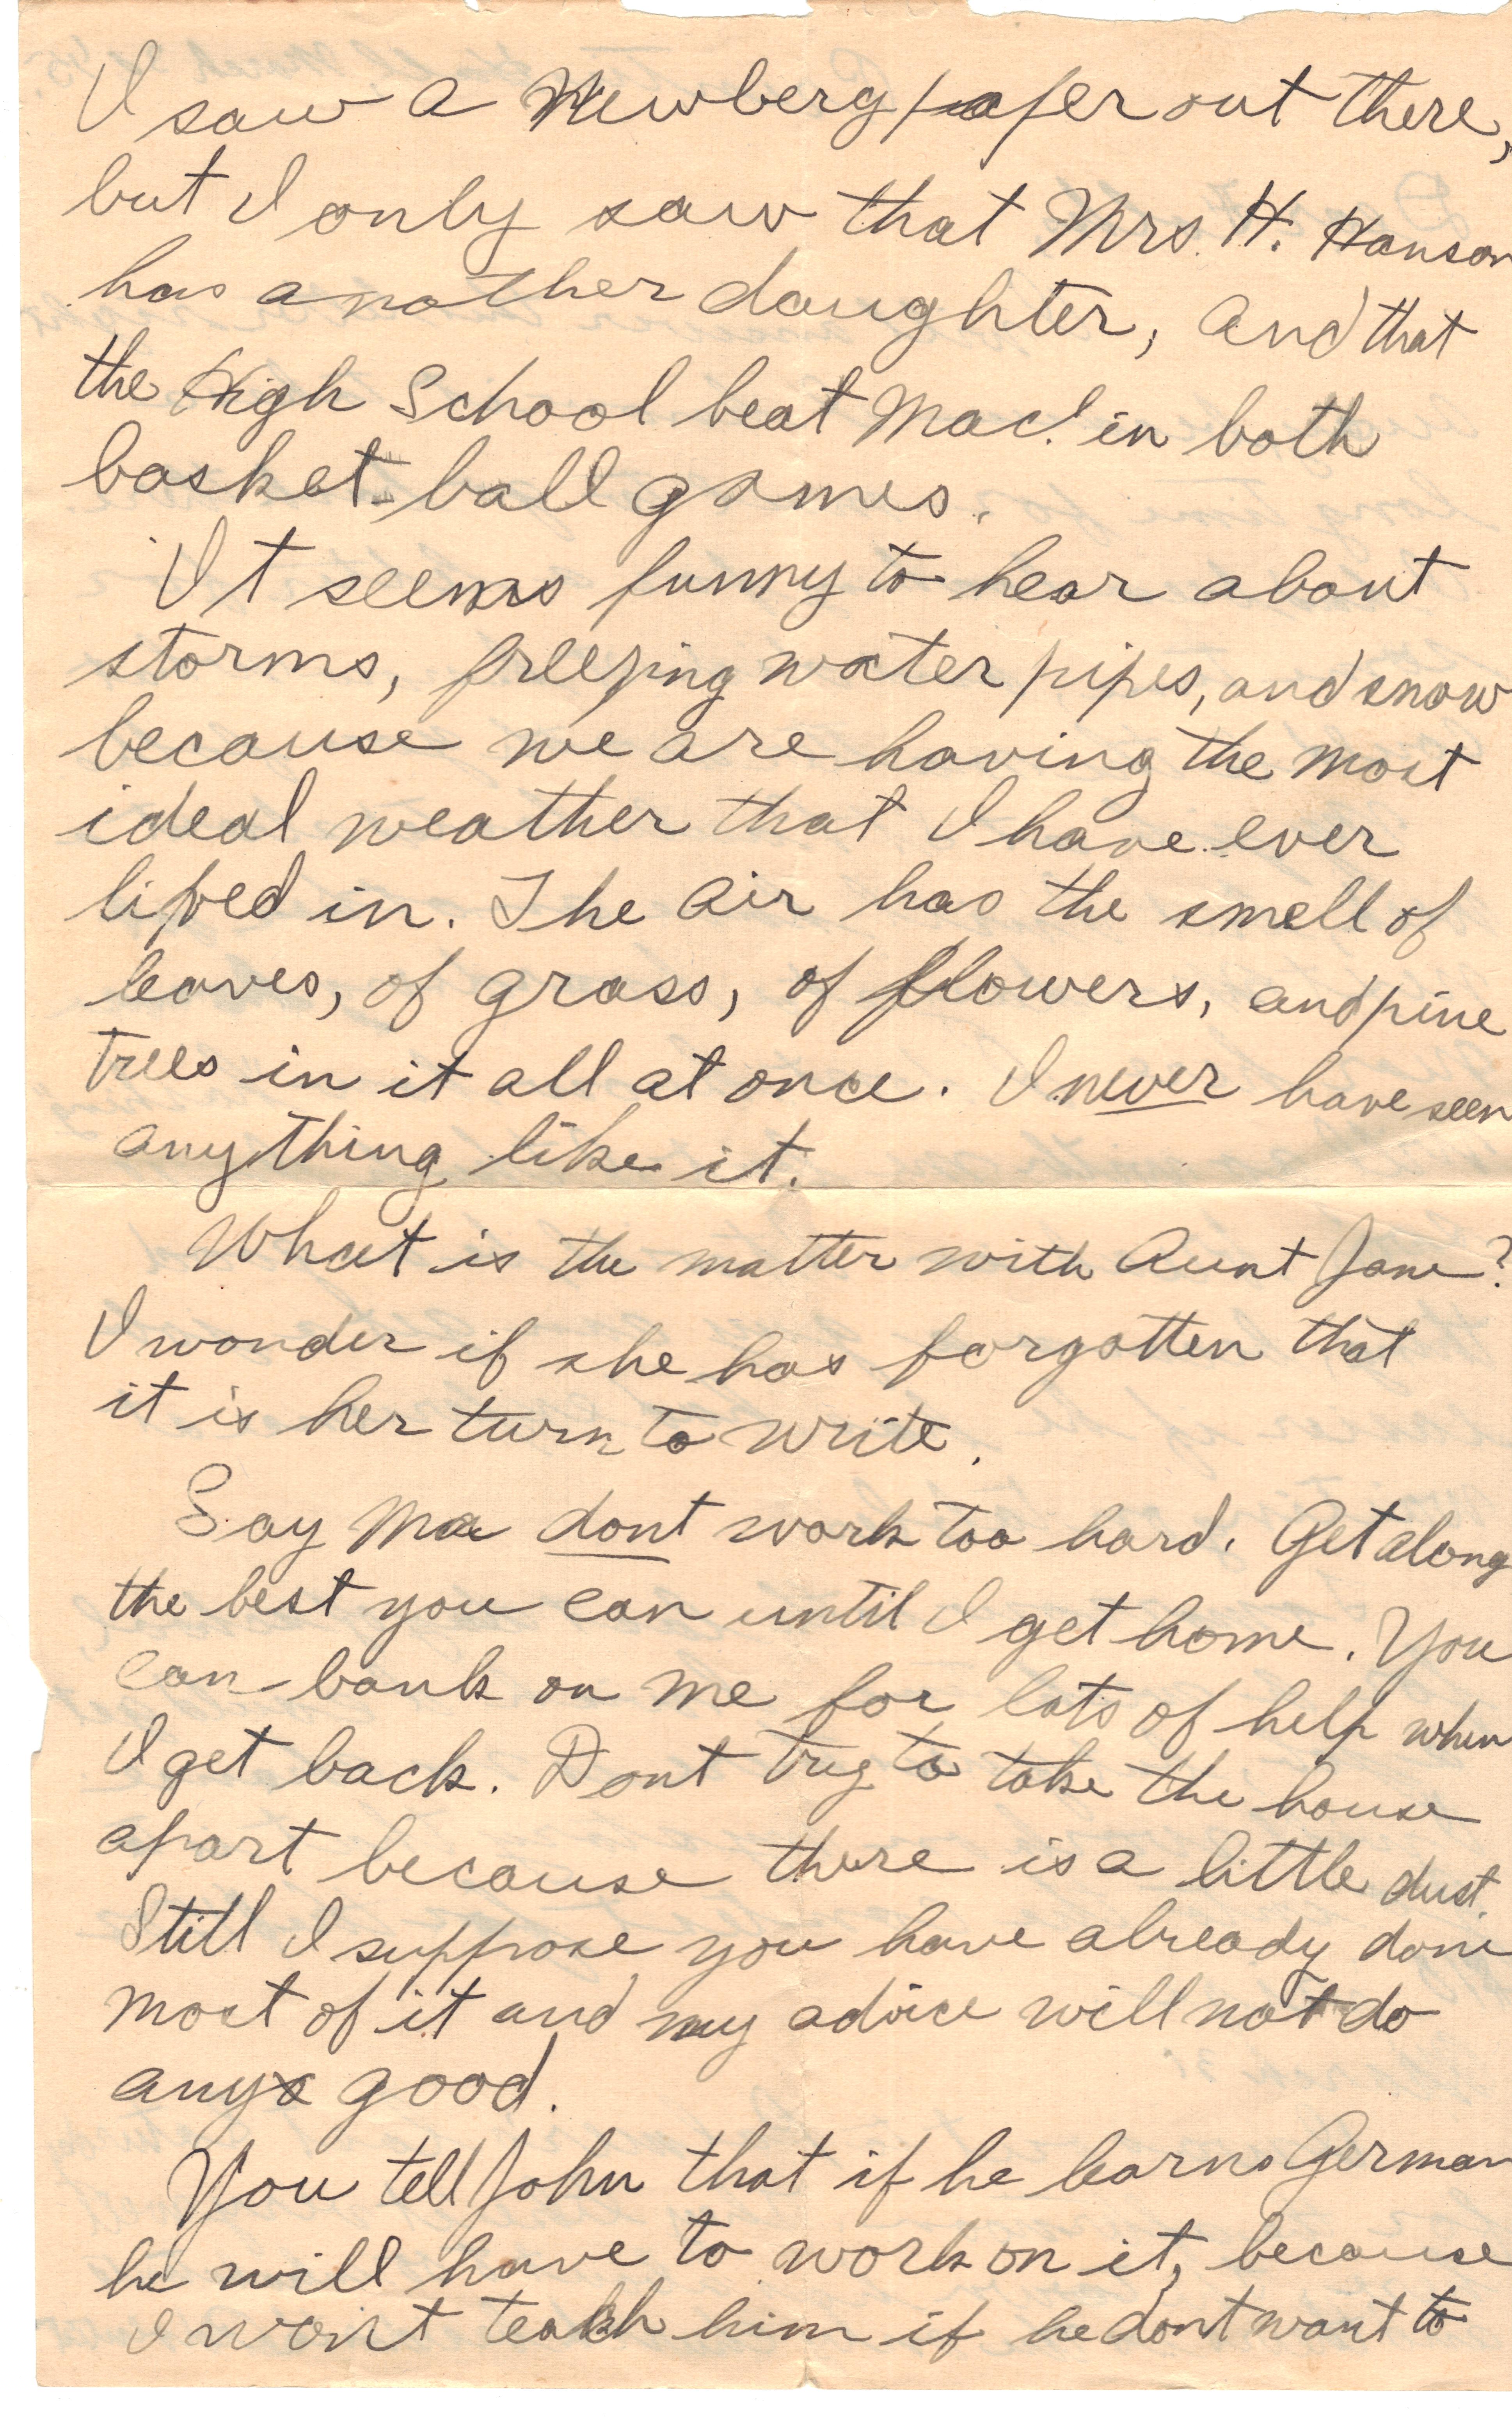 I saw a Newberg paper out there,
but I only saw that Mrs. H. Hanson
has another daughter, and that
the High School beat Mac! in both
basket-ball games.
It seems funny to hear about
storms, freezing water pipes, and snow
because we are having the most
ideal weather that I have ever
lived in. The air has the smell of
leaves, of grass, of flowers, and pine
trees in it all at once. I never have seen
anything like it.
What is the matter with Aunt Jane?
I wonder if she has forgotten that
it is her turn to write.
Say Ma dont work too hard. Get along
the best you can until I get home. You
can bank on me for lots of help when
I get back. Dont try to take the house
apart because there is a little dust.
Still I suppose you have already done
most of it and my advice will not do
any good.
You tell John that if he learns German
he will have to work on it, because
I wont teach him if he dont want to